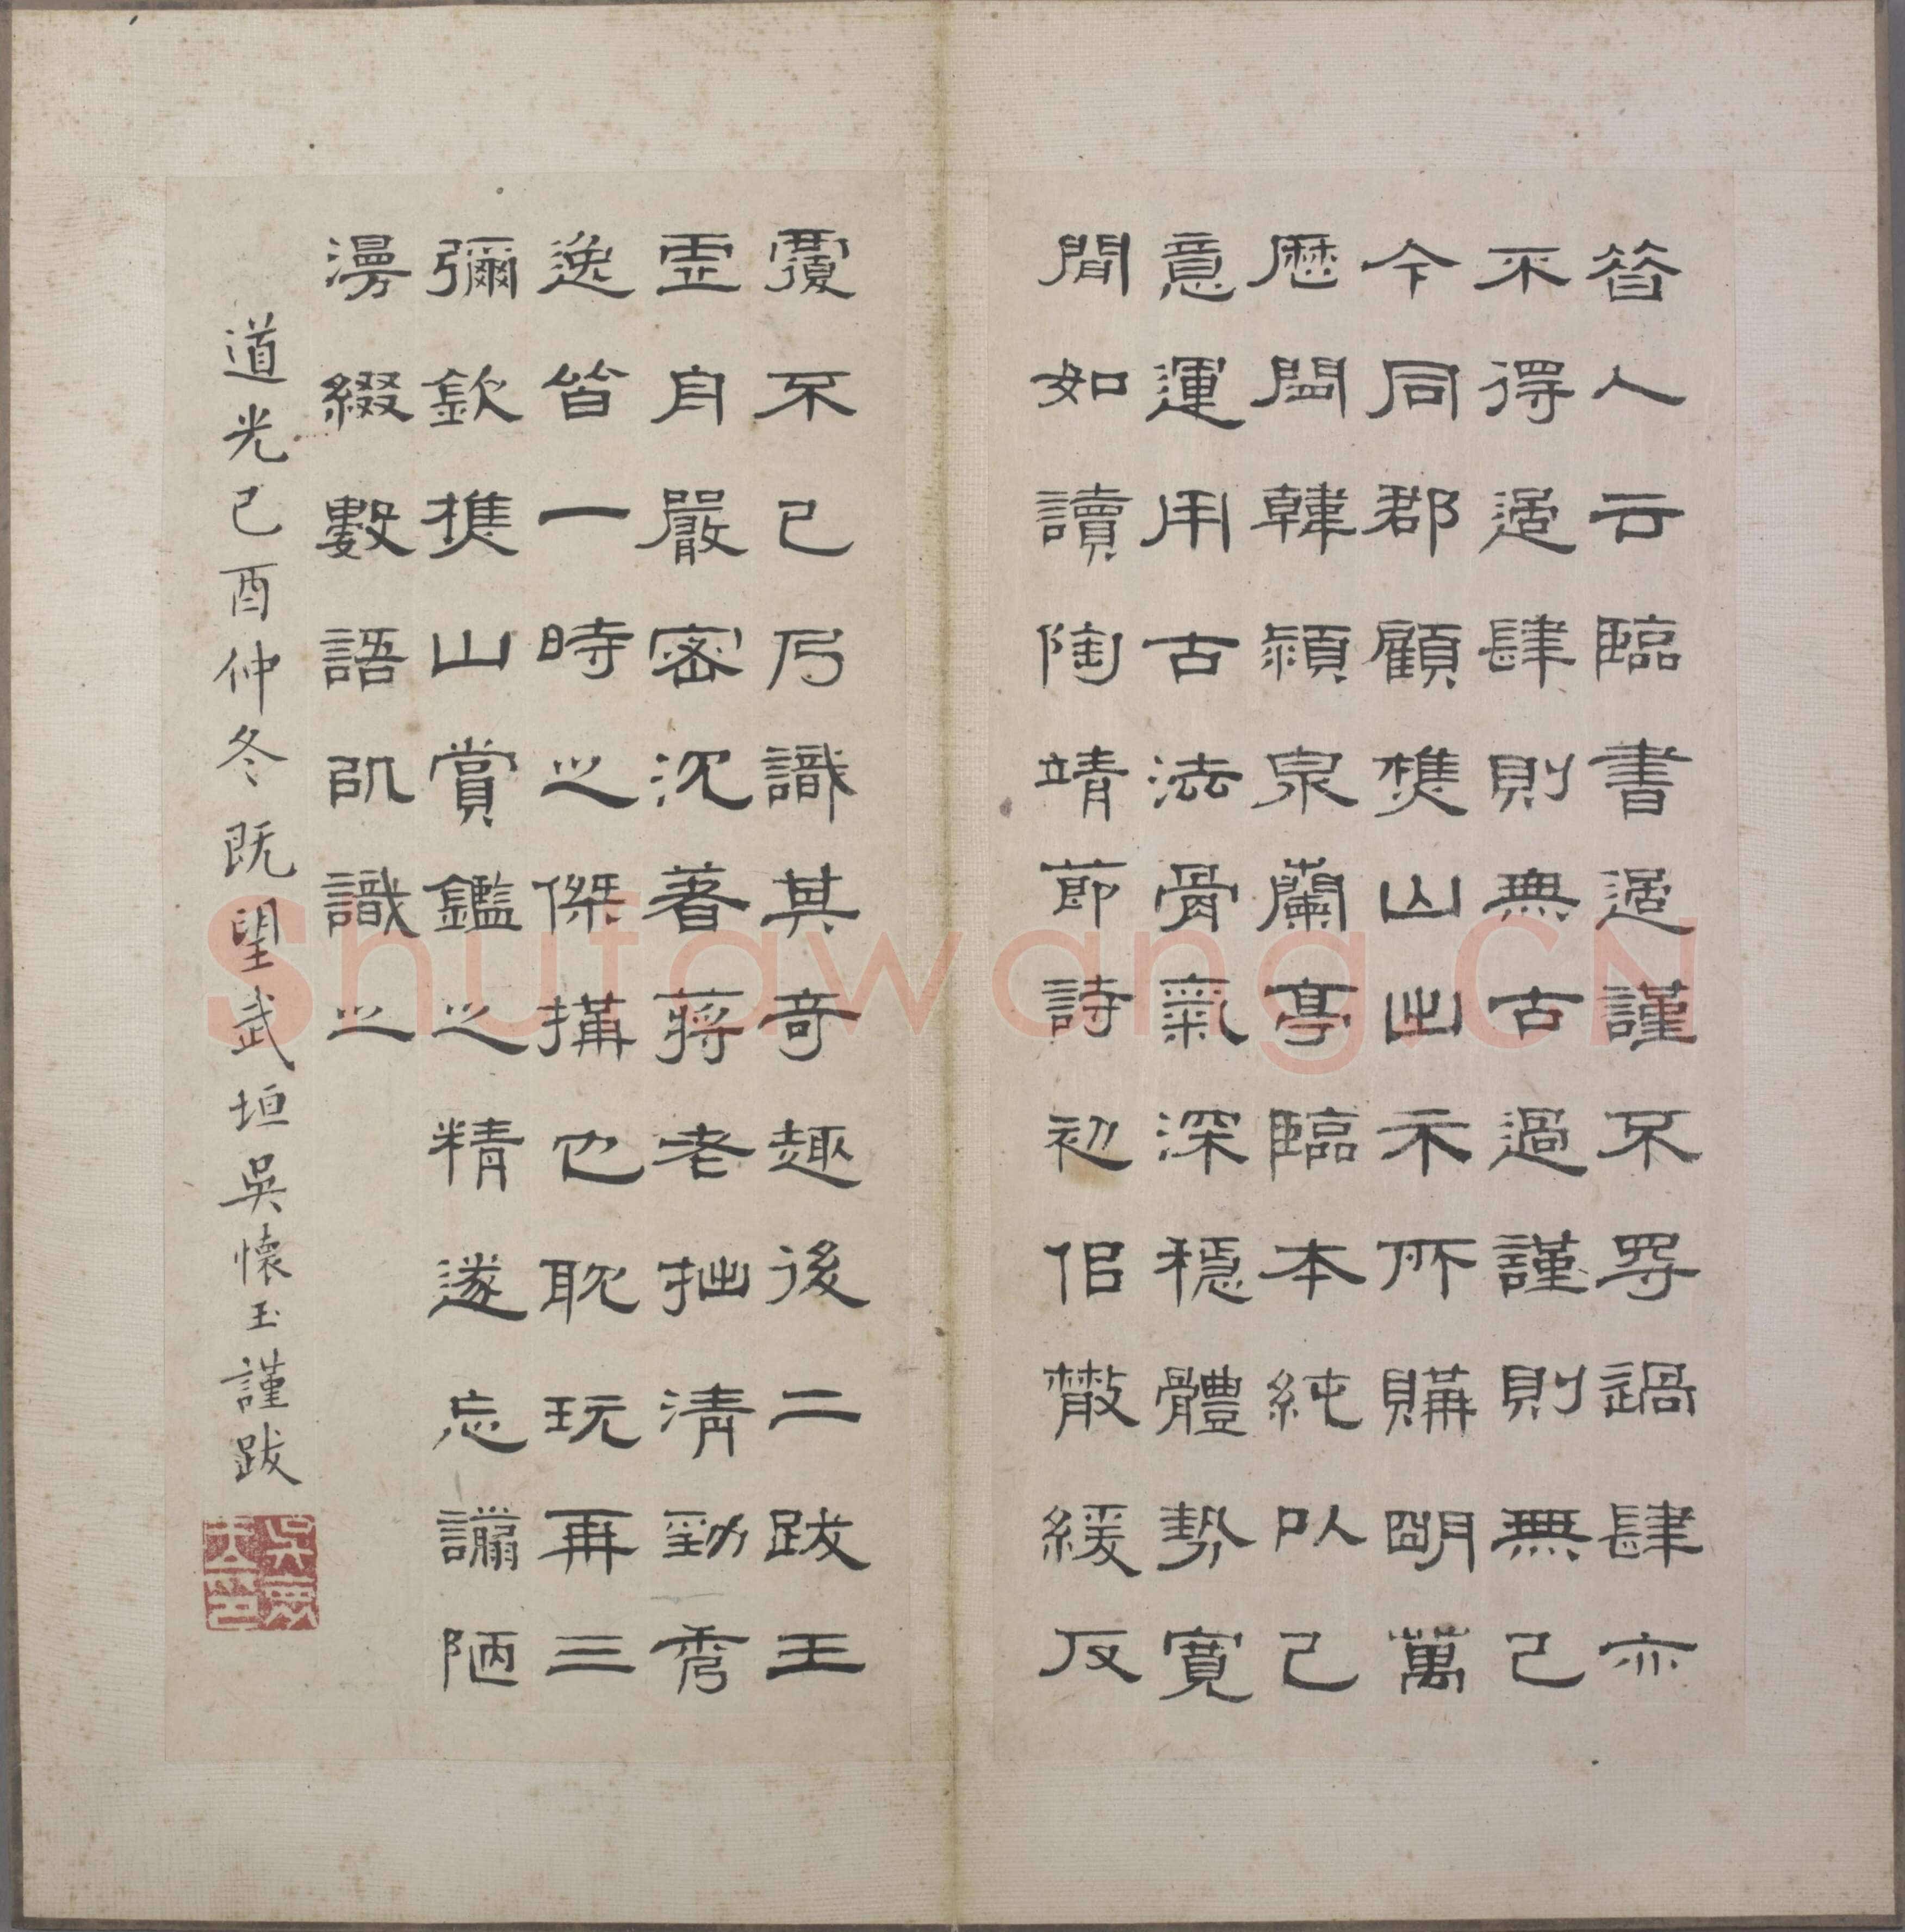 昔人云臨書過謹不㝵過肆亦
不得過肆則無古過謹則無己
今同郡顧樵山出示所購明萬
歷閩韓潁泉蘭亭臨本純以己
意運用古法骨氣深穩體勢寬
閒如讀陶靖節詩初但散緩反
覆不已乃識其奇趣後二跋王
靈自嚴密沉著蔣老拙清勁秀
逸皆一時之傑搆也耽玩再三
彌欽樵山賞鑑之精遂忘譾陋
漫綴數語以識之
道光己酉仲冬既望武垣吳懷玉謹跋
Shufawang.CN